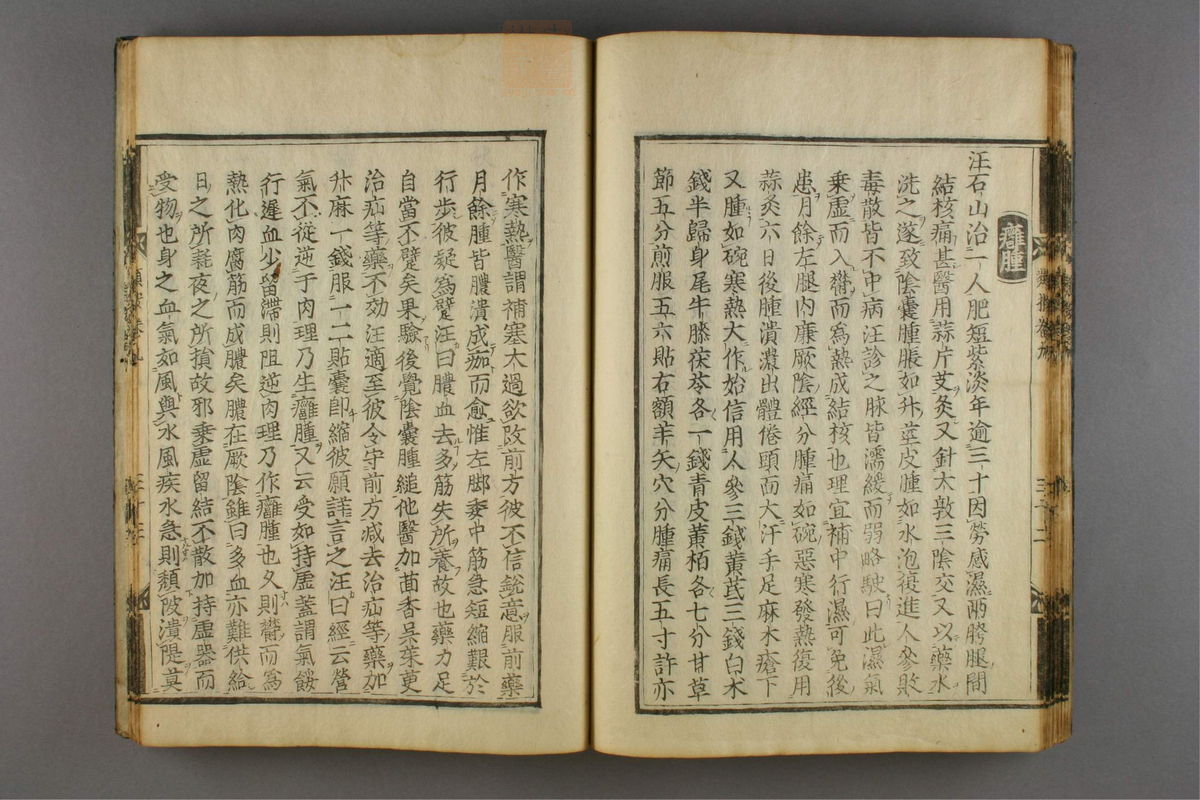 癰腫
汪石山治一人肥短紫淡年逾三十因勞感濕兩胯腿間
結核痛甚醫用蒜片艾灸又針太敦三陰交又以藥水
洗之遂致陰囊腫脹如升莖皮腫如水泡復進人參敗
毒散皆不中病汪診之脉皆濡緩而弱略駛曰此濕氣
乘虛而入欝而爲熱成結核也理宜補中行濕可免後
患月餘左腿內廉厥陰經分腫痛如碗惡寒發熱復用
蒜灸六日後腫潰濃出體倦頭面大汗手足麻木瘡下
又腫如碗寒熱大作始信用人參三錢黃芪三錢白术
錢半歸身尾牛膝茯苓各一錢青皮黃栢各七分甘草
節五分煎服五六貼右額羊矢穴分腫痛長五寸許亦
作寒熱醫謂補塞太過欲改前方彼不信銳意服前藥
月餘腫皆膿潰成痂而愈惟左脚委中筋急短縮艱於
行步彼疑爲躄汪曰膿血去多筋失所養故也藥力足
自當不躄矣果驗後覺陰囊腫縋他醫加茴香吳茱萸
治疝等藥不効汪適至彼令守前方減去治疝等藥加
升麻一錢服一二貼囊卽縮彼願詳言之汪曰經云營
氣不從逆于肉理乃生癰腫又云受如持虛蓋謂氣餒
行遲血少留滯則阻逆肉理乃作癰腫也久則欝而爲
熱化肉腐筋而成膿矣膿在厥陰雖曰多血亦難供給
日之所耗夜之所損故邪乘虛留結不散加持虛器而
受物也身之血氣如風與水風疾水急則頹陂潰隄莫